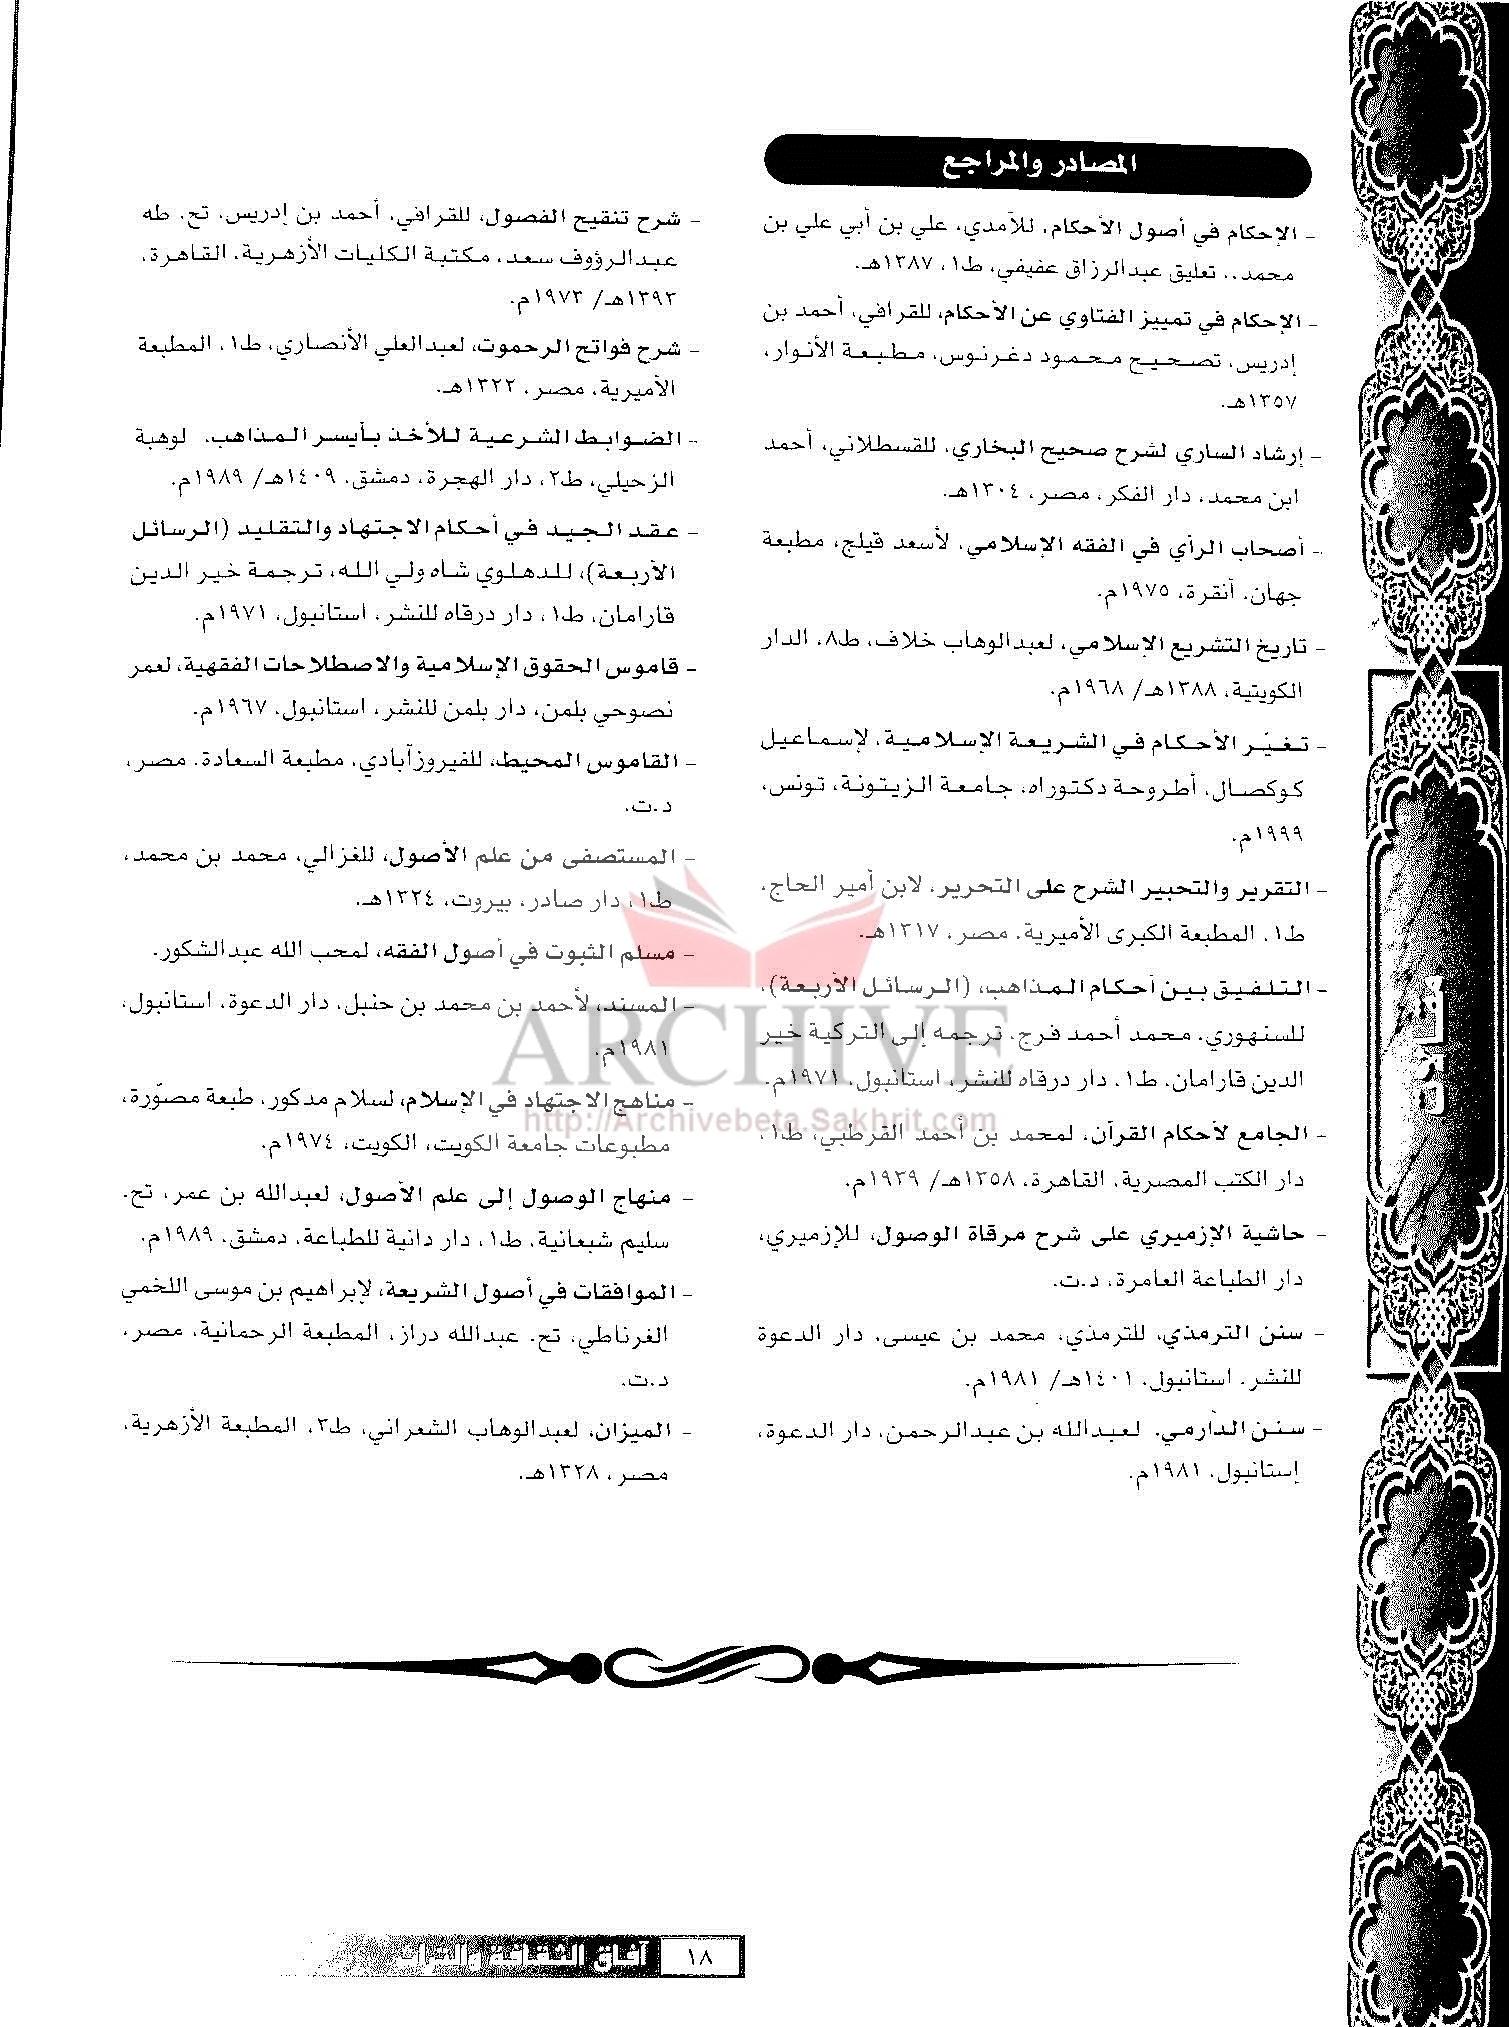 المصادر والمراجع
- الإحكام في أصول الأحكام، للآمدي، علي بن أبي علي بن
محمد.. تعليق عبدالرزاق عفيفي، ط١، ١٣٨٧هـ.
- الإحكام في تمييز الفتاوي عن الأحكام، للقرافي، أحمد بن
إدريس، تصحيح محمود دغرنوس، مطبعة الأنوار،
١٣٥٧هـ.
- إرشاد الساري لشرح صحيح البخاري، للقسطلاني، أحمد
ابن محمد، دار الفكر، مصر، ١٣٠٤هـ.
- أصحاب الرأي في الفقه الإسلامي، لأسعد قيلج، مطبعة
جهان، أنقرة، ١٩٧٥م.
- تاريخ التشريع الإسلامي، لعبدالوهاب خلاف، ط٨، الدار
الكويتية، ١٣٨٨هـ/ ١٩٦٨م.
- تغيّر الأحكام في الشريعة الإسلامية، لإسماعيل
كوكصال، أطروحة دكتوراه، جامعة الزيتونة، تونس،
١٩٩٩م.
- التقرير والتحبير الشرح على التحرير، لابن أمير الحاج،
ط١، المطبعة الكبرى الأميرية، مصر، ١٣١٧هـ.
- التلفيق بين أحكام المذاهب، (الرسائل الأربعة)،
للسنهوري، محمد أحمد فرج، ترجمه إلى التركية خير
الدين قارامان، ط١، دار درقاه للنشر، استانبول، ١٩٧١م.
- الجامع لأحكام القرآن، لمحمد بن أحمد القرطبي، ط١،
دار الكتب المصرية، القاهرة، ١٣٥٨هـ/ ١٩٣٩م.
- حاشية الإزميري على شرح مرقاة الوصول، للإزميري،
دار الطباعة العامرة، د.ت.
- سنن الترمذي، للترمذي، محمد بن عيسى، دار الدعوة
للنشر، استانبول، ١٤٠١هـ/ ١٩٨١م.
- سنن الدارمي، لعبدالله بن عبدالرحمن، دار الدعوة،
إستانبول، ١٩٨١م.
- شرح تنقيح الفصول، للقرافي، أحمد بن إدريس، تح. طه
عبدالرؤوف سعد، مكتبة الكليات الأزهرية، القاهرة،
١٣٩٣هـ/ ١٩٧٣م.
- شرح فواتح الرحموت، لعبدالعلي الأنصاري، ط١، المطبعة
الأميرية، مصر، ١٣٢٢هـ.
- الضوابط الشرعية للأخذ بأيسر المذاهب، لوهبة
الزحيلي، ط٢، دار الهجرة، دمشق، ١٤٠٩هـ/ ١٩٨٩م.
- عقد الجيد في أحكام الاجتهاد والتقليد (الرسائل
الأربعة)، للدهلوي شاه ولي الله، ترجمة خير الدين
قارامان، ط١، دار درقاه للنشر، استانبول، ١٩٧١م.
- قاموس الحقوق الإسلامية والاصطلاحات الفقهية، لعمر
نصوحي بلمن، دار بلمن للنشر، استانبول، ١٩٦٧م.
- القاموس المحيط، للفيروزآبادي، مطبعة السعادة، مصر،
د.ت.
- المستصفى من علم الأصول، للغزالي، محمد بن محمد،
ط١، دار صادر، بيروت، ١٣٢٤هـ.
- مسلم الثبوت في أصول الفقه، لمحب الله عبدالشكور.
- المسند، لأحمد بن محمد بن حنبل، دار الدعوة، استانبول،
١٩٨١م.
- مناهج الاجتهاد في الإسلام، لسلام مدكور، طبعة مصوّرة،
مطبوعات جامعة الكويت، الكويت، ١٩٧٤م.
- منهاج الوصول إلى علم الأصول، لعبدالله بن عمر، تح.
سليم شبعانية، ط١، دار دانية للطباعة، دمشق، ١٩٨٩م.
- الموافقات في أصول الشريعة، لإبراهيم بن موسى اللخمي
الغرناطي، تح. عبدالله دراز، المطبعة الرحمانية، مصر،
د.ت.
- الميزان، لعبدالوهاب الشعراني، ط٣، المطبعة الأزهرية،
مصر، ١٣٢٨هـ.
مقالات
ARCHIVE
http://Archivebeta.Sakhrit.com
١٨
آفاق الثقافة والتراث